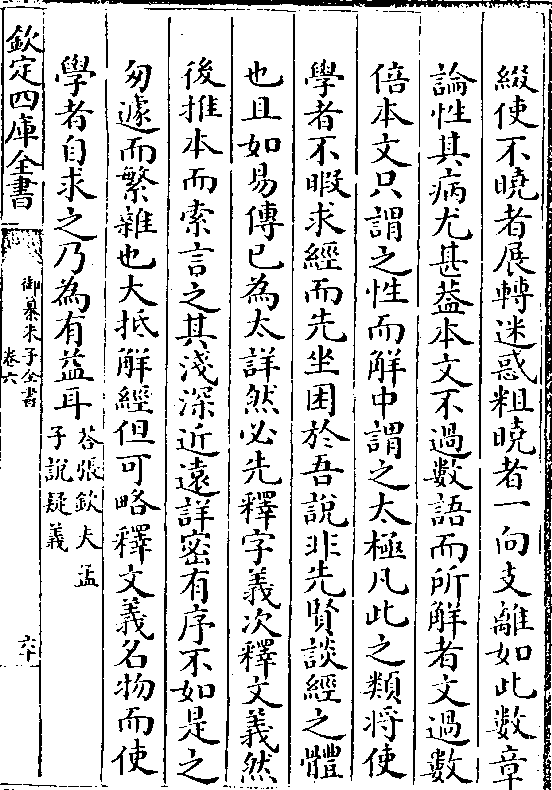 綴使不曉者展轉迷惑粗曉者一向支離如此數章
論性其病尤甚葢本文不過數語而所解者文過數
倍本文只謂之性而解中謂之太極凡此之類將使
學者不暇求經而先坐困於吾說非先賢談經之體
也且如易傳已為太詳然必先釋字義次釋文義然
後推本而索言之其淺深近遠詳密有序不如是之
匆遽而繁雜也大抵解經但可略釋文義名物而使
學者自求之乃為有益耳答張欽夫孟
子說疑義
欽定四庫全書
御纂朱子全書
卷六
六十